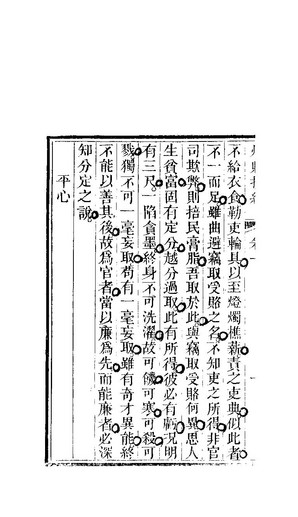 不給衣食勒吏輪具以至燈燭樵薪責之吏典似此者
不一而足雖曲避竊取受賂之名不知吏之所得非官
司欺弊則掊民膏脂吾取於此與竊取受賂何異思人
生貧富固有定分越分過取此有所得彼必有虧況明
有三尺一陷貪墨終身不可洗濯故可饑可寒可殺可
戮獨不可一毫妄取苟有一毫妄取雖有奇才異能終
不能以善其後故爲官者當以廉爲先而能廉者必深
知分定之說
平心